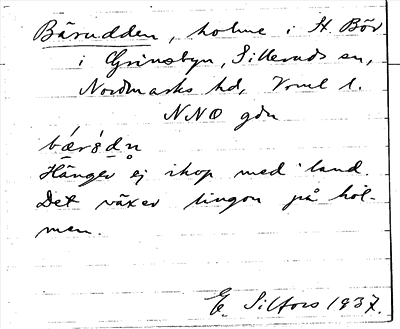 Bärudden, holme i St. Bör
i Grinsbyn, Silleruds sn,
Nordmarks hd, Vrml l.
NNO gdn
Hänger ej ihop med land.
Det växer lingon på hol-
men.
E. Silfors 1937.